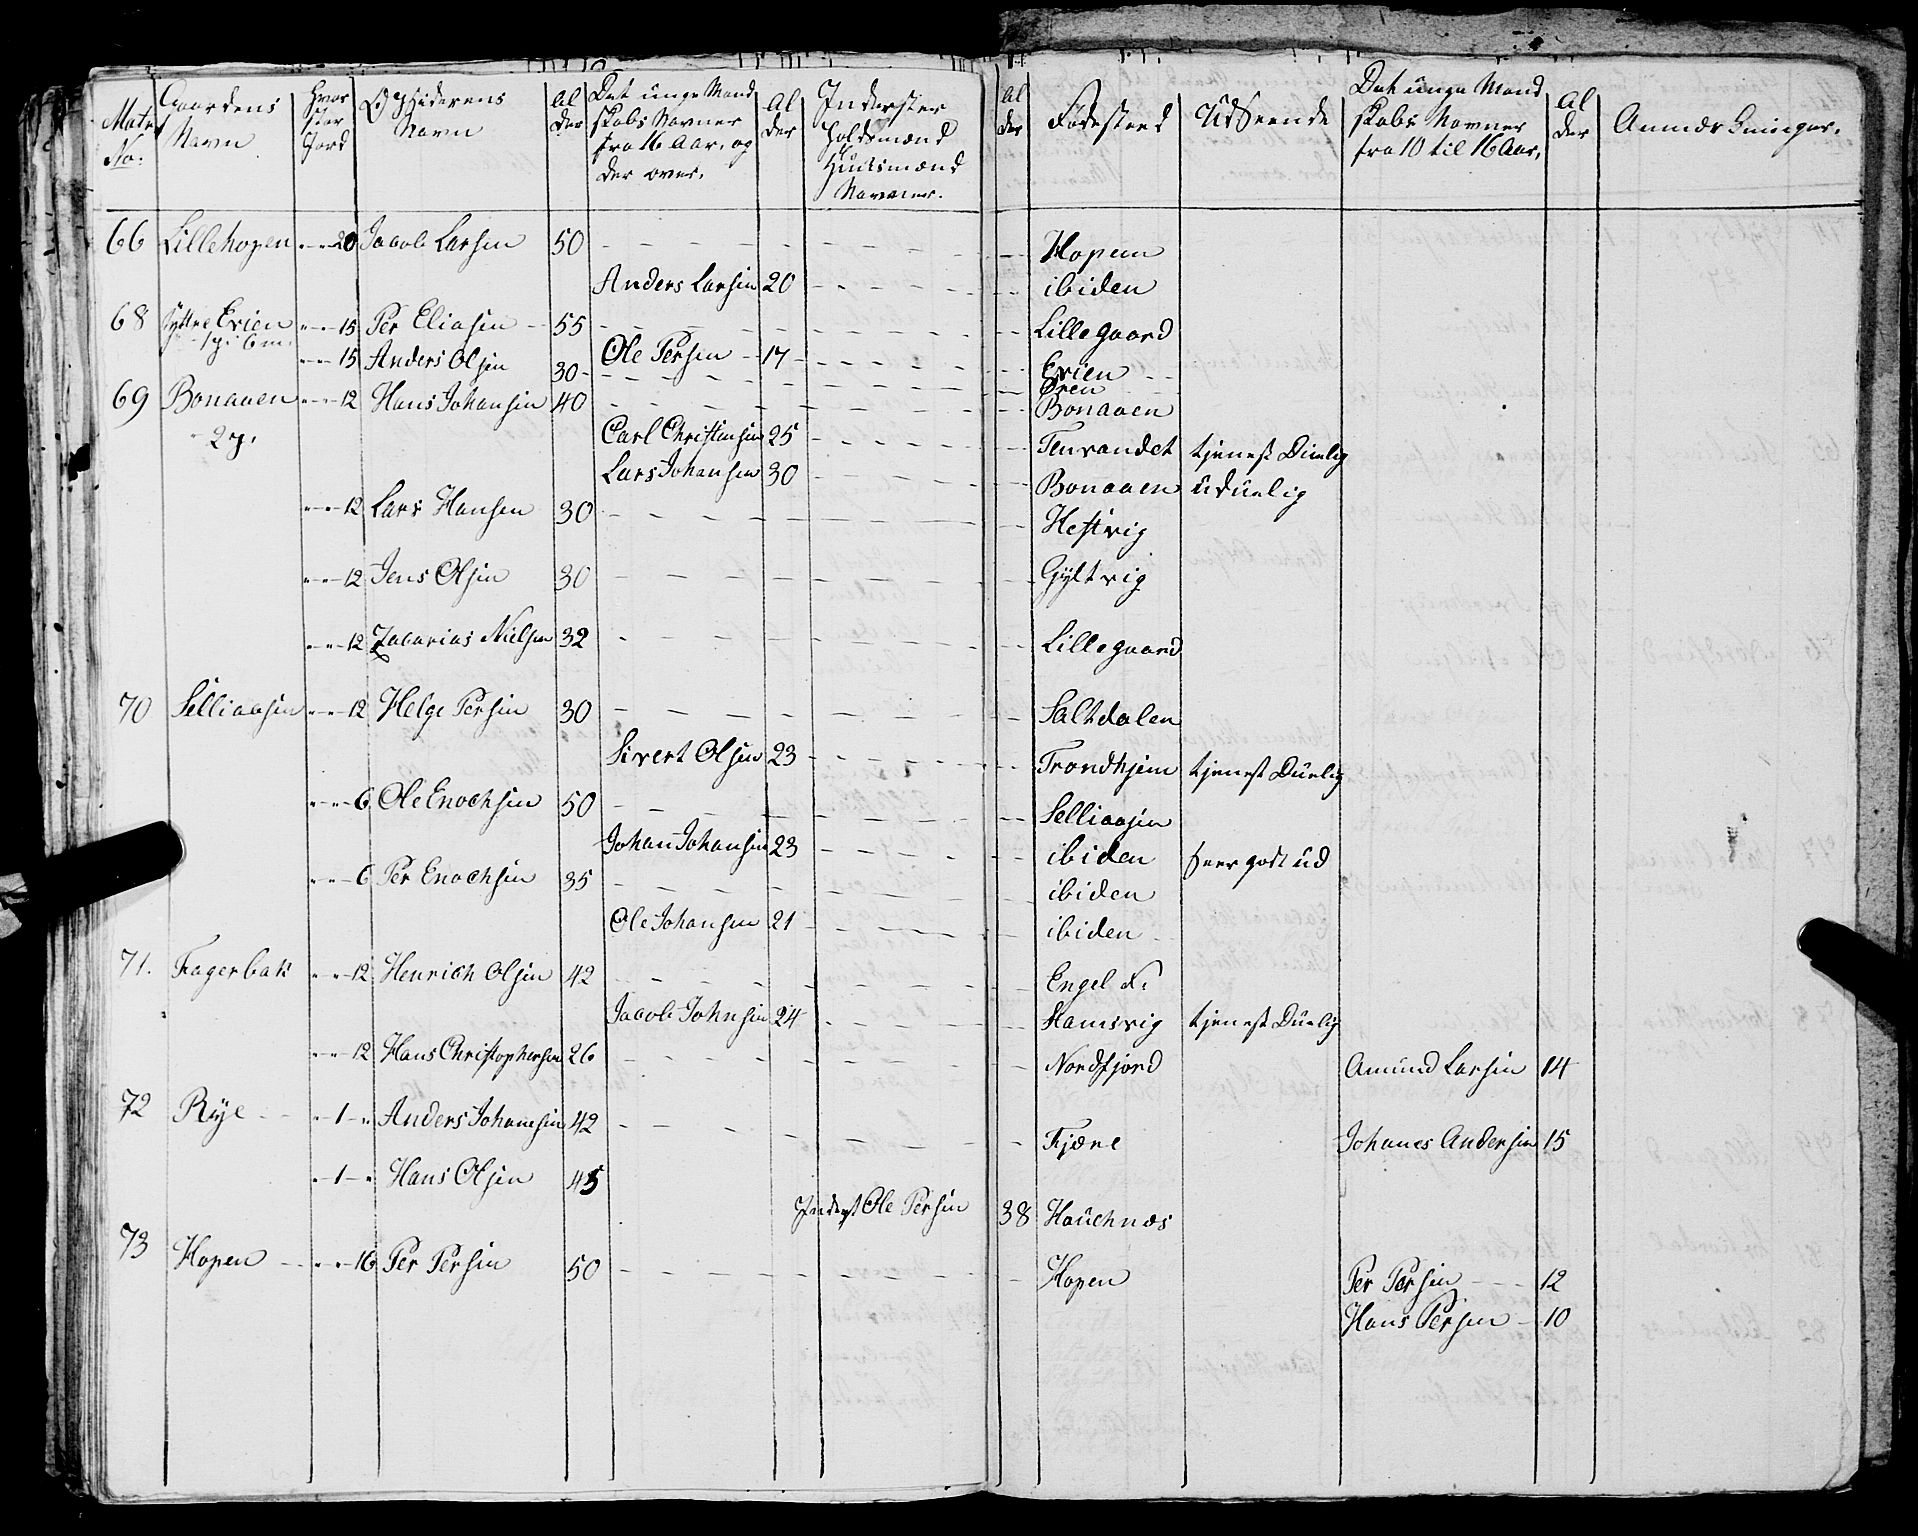 Matr No: Gaardens Navn Hvor stor Jord Opsiderens Navn Alder Det unge Mandskabs Navner fra 16 Aar, og der over. Alder Inderster Holdsmænd Huusmænd Navner. Alder Fødesteed Udseende Det unge Mandskabs Navner fra 10 til 16 Aar, Alder Anmærkninger.
66 Lillehopen " - " - 20 Jacob Larsen 50 Hopen
Anders Larsen 20 ibiden
68 Yttre Evien " - " - 15 Per Eliasen 55 Lillegaard
1 p: 6 m:
Ole Persen 17 Evien
" - " - 15 Anders Olsen 30 Øren
69 Bonaaen " - " - 12 Hans Johansen 40 Bonaaen
2 p.
Carl Christensen 25 Tenvandet tjenest Duelig
Lars Johansen 30 Bonaaen uduelig
" - " - 12 Lars Hansen 30 Hestvig
" - " - 12 Jens Olsen 30 Gyltvig
" - " - 12 Zacarias Nielsen 32 Lillegaard
70 Selliaasen " - " - 12 Helge Persen 30 Saltdalen
Sivert Olsen 23 Trondhjem tjenest Duelig
" - " - 6 Ole Enochsen 50 Selliaasen
Johan Johansen 23 ibiden seer godt ud
" - " - 6 Per Enochsen 35 ibiden
Ole Johansen 21 ibiden
71. Fagerbak " - " - 12 Henrich Olsen 42 Engel d:
Jacob Johnsen 24 Hamsvig tjenest Duelig
" - " - 12 Hans Christophersen 26 Nordfjord Amund Larsen 14
72 Rye " - 1 - " Anders Johannesen 42 Fjære Johanes Andersen 15
" - 1 - " Hans Olsen 45
Inderst Ole Persen 38 Hauchnæs
73 Hopen " - " - 16 Per Persen 50 Hopen Per Persen 12
Hans Persen 10